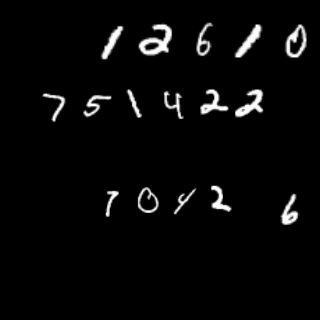 1 2 6 1 0
7 5 1 4 2 2
7 0 4 2 6